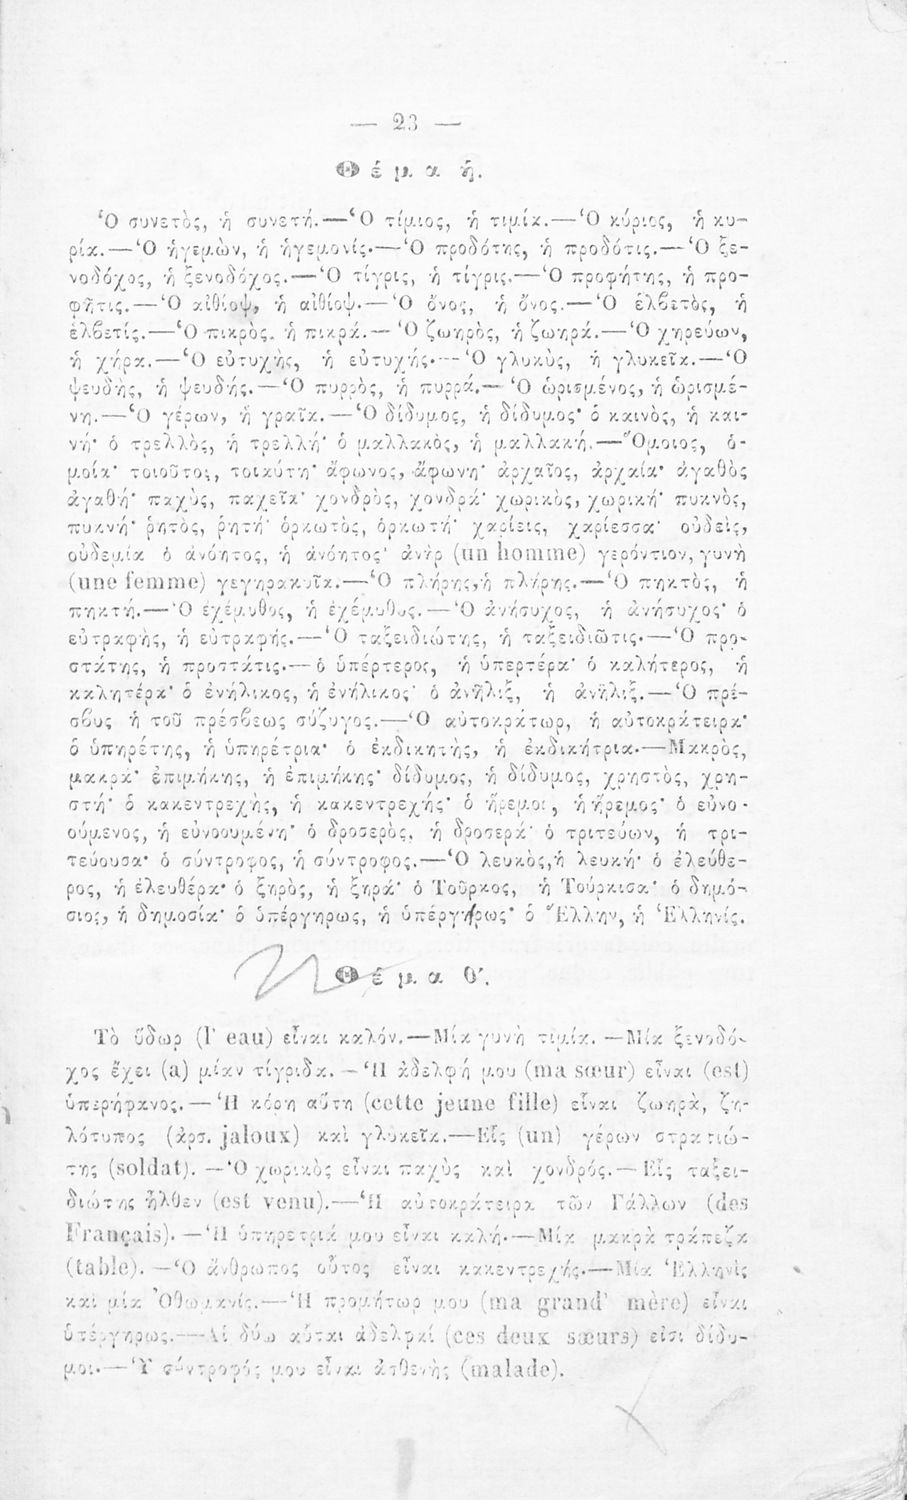 — 23 —
Θέμα ή.
Ὁ συνετὸς, ἡ συνετή.—Ὁ τίμιος, ἡ τιμία.—Ὁ κύριος, ἡ κυ-
ρία.—Ὁ ἡγεμὼν, ἡ ἡγεμονίς.—Ὁ προδότης, ἡ προδότις.—Ὁ ξε-
νοδόχος, ἡ ξενοδόχος.—Ὁ τίγρις, ἡ τίγρις.—Ὁ προφήτης, ἡ προ-
φῆτις.—Ὁ αἰθίοψ, ἡ αἰθίοψ.—Ὁ ὄνος, ἡ ὄνος.—Ὁ ἑλβετὸς, ἡ
ἑλβετίς.—Ὁ πικρὸς, ἡ πικρά.—Ὁ ζωηρὸς, ἡ ζωηρά.—Ὁ χηρεύων,
ἡ χήρα.—Ὁ εὐτυχὴς, ἡ εὐτυχής.—Ὁ γλυκὺς, ἡ γλυκεῖα.—Ὁ
ψευδὴς, ἡ ψευδής.—Ὁ πυρρὸς, ἡ πυρρά.—Ὁ ὡρισμένος, ἡ ὡρισμέ-
νη.—Ὁ γέρων, ἡ γραῖα.—Ὁ δίδυμος, ἡ δίδυμος· ὁ καινὸς, ἡ και-
νή· ὁ τρελλὸς, ἡ τρελλή· ὁ μαλλακὸς, ἡ μαλλακή.—Ὅμοιος, ὁ-
μοία· τοιοῦτος, τοιαύτη· ἄφωνος, ἄφωνη· ἀρχαῖος, ἀρχαία· ἀγαθὸς
ἀγαθή· παχὺς, παχεῖα· χονδρὸς, χονδρά· χωρικὸς, χωρική· πυκνὸς,
πυκνή· ῥητὸς, ῥητή· ὁρκωτὸς, ὁρκωτή· χαρίεις, χαρίεσσα· οὐδεὶς,
οὐδεμία ὁ ἀνόητος, ἡ ἀνόητος· ἀνὴρ (un homme) γερόντιον, γυνὴ
(une femme) γεγηρακυῖα.—Ὁ πλήρης, ἡ πλήρης.—Ὁ πηκτὸς, ἡ
πηκτή.—Ὁ ἐχέμυθος, ἡ ἐχέμυθος.—Ὁ ἀνήσυχος, ἡ ἀνήσυχος· ὁ
εὐτραφὴς, ἡ εὐτραφής.—Ὁ ταξειδιώτης, ἡ ταξειδιῶτις.—Ὁ προ-
στάτης, ἡ προστάτις.—ὁ ὑπέρτερος, ἡ ὑπερτέρα· ὁ καλήτερος, ἡ
καλητέρα· ὁ ἐνήλικος, ἡ ἐνήλικος· ὁ ἀνῆλιξ, ἡ ἀνῆλιξ.—Ὁ πρέ-
σβυς ἡ τοῦ πρέσβεως σύζυγος.—Ὁ αὐτοκράτωρ, ἡ αὐτοκράτειρα·
ὁ ὑπηρέτης, ἡ ὑπηρέτρια· ὁ ἐκδικητὴς, ἡ ἐκδικήτρια.—Μακρὸς,
μακρά· ἐπιμήκης, ἡ ἐπιμήκης· δίδυμος, ἡ δίδυμος, χρηστὸς, χρη-
στή· ὁ κακεντρεχὴς, ἡ κακεντρεχής· ὁ ἤρεμος, ἡ ἤρεμος· ὁ εὐνο-
ούμενος, ἡ εὐνοουμένη· ὁ δροσερὸς, ἡ δροσερά· ὁ τριτεύων, ἡ τρι-
τεύουσα· ὁ σύντροφος, ἡ σύντροφος.—Ὁ λευκὸς, ἡ λευκή· ὁ ἐλεύθε-
ρος, ἡ ἐλευθέρα· ὁ ξηρὸς, ἡ ξηρά· ὁ Τοῦρκος, ἡ Τούρκισα· ὁ δημό-
σιος, ἡ δημοσία· ὁ ὑπέργηρως, ἡ ὑπέργηρως· ὁ Ἕλλην, ἡ Ἑλληνίς.
Θέμα θ'.
Τὸ ὕδωρ (l' eau) εἶναι καλόν.—Μία γυνὴ τιμία.—Μία ξενοδό-
χος ἔχει (a) μίαν τίγριδα.—Ἡ ἀδελφή μου (ma sœur) εἶναι (est)
ὑπερήφανος.—Ἡ κόρη αὕτη (cette jeune fille) εἶναι ζωηρὰ, ζη-
λότυπος (ἀρσ. jaloux) καὶ γλυκεῖα.—Εἷς (un) γέρων στρατιώ-
της (soldat).—Ὁ χωρικὸς εἶναι παχὺς καὶ χονδρός.—Εἷς ταξει-
διώτης ἦλθεν (est venu).—Ἡ αὐτοκράτειρα τῶν Γάλλων (des
Français).—Ἡ ὑπηρετριά μου εἶναι καλή.—Μία μακρὰ τράπεζα
(table).—Ὁ ἄνθρωπος οὗτος εἶναι κακεντρεχής.—Μία Ἑλληνὶς
καὶ μία Ὀθωμανίς.—Ἡ προμήτωρ μου (ma grand' mère) εἶναι
ὑπέργηρως.—Αἱ δύω αὗται ἀδελφαί (ces deux sœurs) εἰσι δίδυ-
μοι.—Ὁ σύντροφός μου εἶναι ἀσθενὴς (malade).